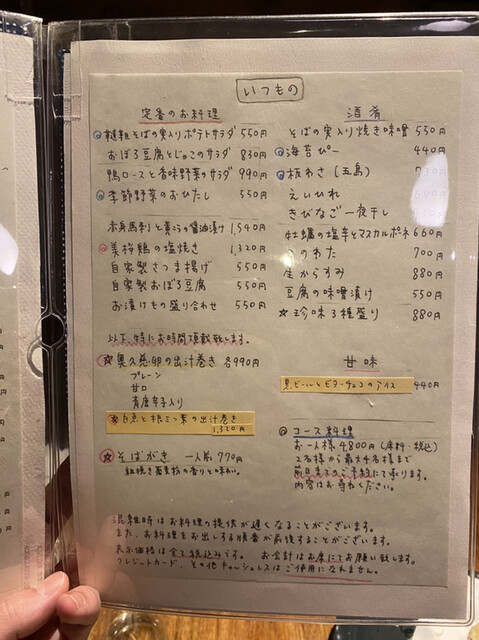 いつもの
定番のお料理
そばの実入りポテトサラダ 550円
おぼろ豆腐とじゃこのサラダ 830円
鴨ロースと香味野菜のサラダ 990円
季節野菜のおひたし 550円
赤身馬刺し 醤油漬け 1,540円
美桜鶏の塩焼き 1,320円
自家製さつま揚げ 550円
自家製おぼろ豆腐 550円
お漬けもの盛り合わせ 550円
以下、特にお時間頂戴致します。
奥久慈卵の出汁巻き 各990円
プレーン
甘口
青唐辛子入り
白魚と根三つ葉の出汁巻き
1,320円
そばがき 一人前 770円
粗挽き蕎麦粉の香りと味わい。
酒肴
そばの実入り焼き味噌 550円
海苔ぴー 440円
板わさ(五島)
えいひれ
きびなご一夜干し
牡蠣の塩辛とマスカルポーネ 660円
このわた 700円
生からすみ 880円
豆腐の味噌漬け 550円
珍味3種盛り 880円
甘味
黒ビールとビターチョコのアイス 440円
コース料理
お一人様 4,800円(席料・税込)
2名様から最大4名様まで
前日までのご予約にて承ります。
内容はお尋ねください。
混雑時はお料理の提供が遅くなることがございます。
また、お料理をお出しする順番が前後することがございます。
表示価格は全て税込みです。 お会計はお席にてお願い致します。
クレジットカード、その他キャッシュレスはご使用になれません。